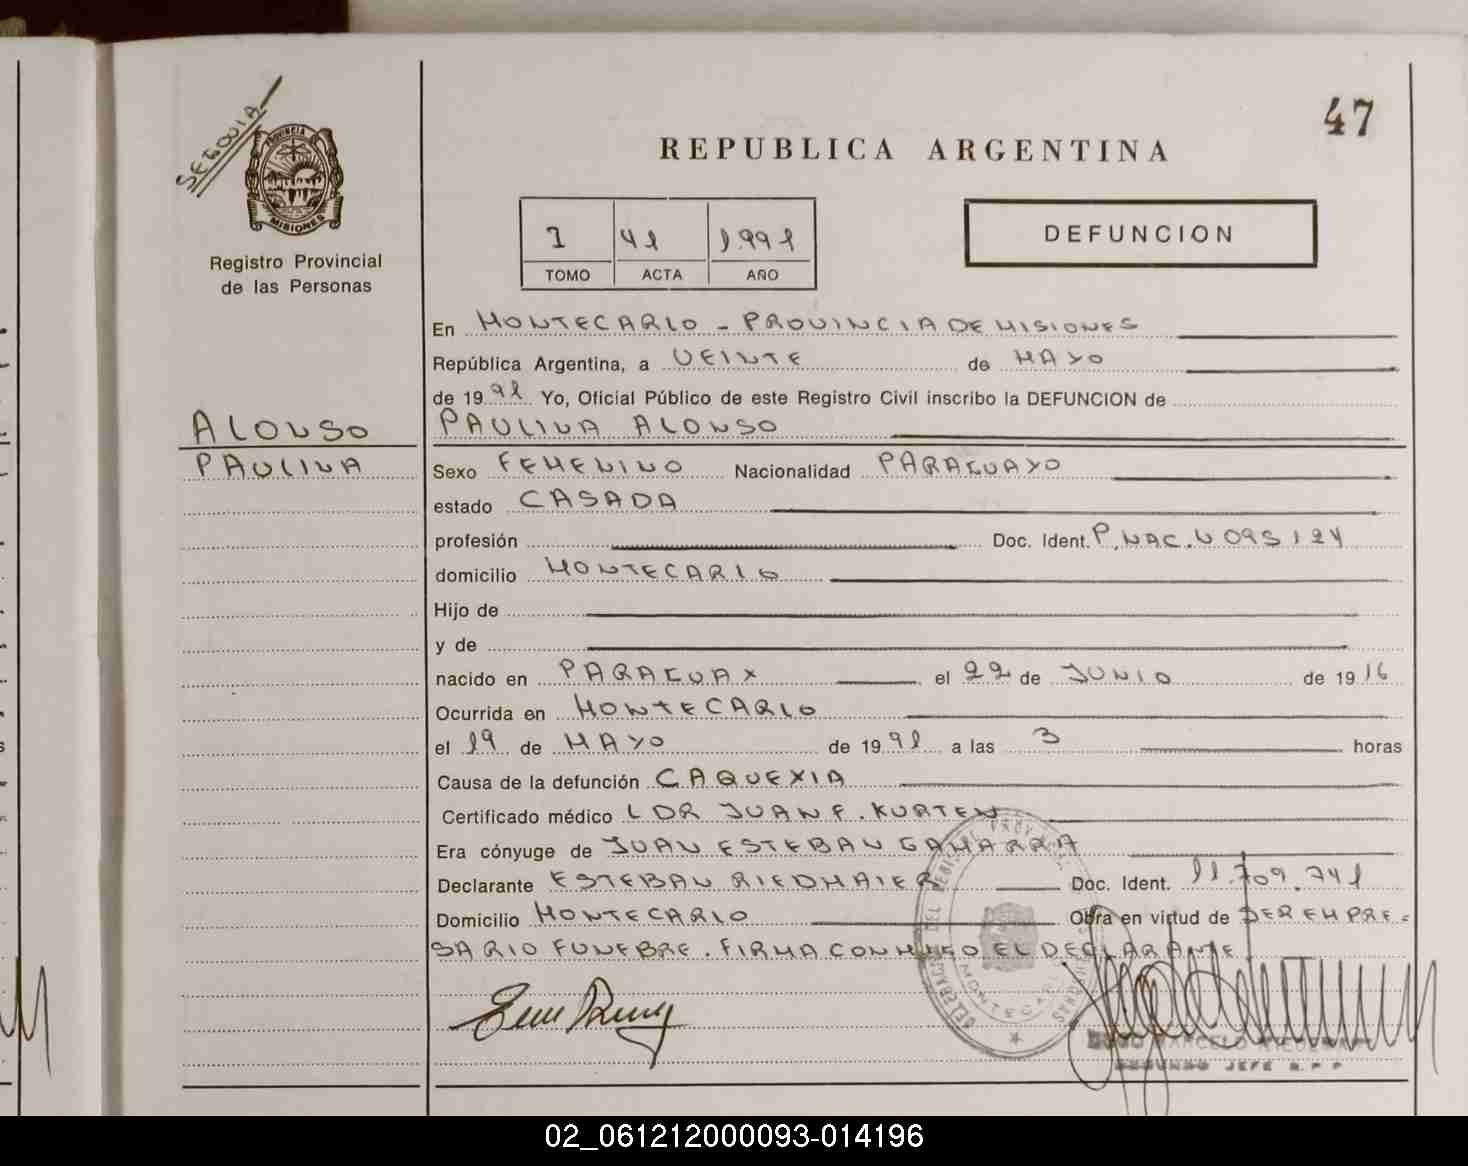 47
SEGOVIA
PROVINCIA
MISIONES
Registro Provincial
de las Personas
REPUBLICA ARGENTINA
1 41 1991
TOMO ACTA AÑO
DEFUNCION
En MONTECARLO - PROVINCIA DE MISIONES
República Argentina, a VEINTE de MAYO
de 1991 Yo, Oficial Público de este Registro Civil inscribo la DEFUNCION de
ALONSO
PAULINA
PAULINA ALONSO
Sexo FEMENINO Nacionalidad PARAGUAYO
estado CASADA
profesión Doc. Ident. P. NAC. N 095124
domicilio MONTECARLO
Hijo de
y de
nacido en PARAGUAY el 22 de JUNIO de 1916
Ocurrida en MONTECARLO
el 19 de MAYO de 1991 a las 3 horas
Causa de la defunción CAQUEXIA
Certificado médico LDR JUAN F. KURTEN
Era cónyuge de JUAN ESTEBAN GAMARRA
Declarante ESTEBAN RIEDMAIER Doc. Ident. 11.709.741
Domicilio MONTECARLO Obra en virtud de SER EMPRE=
SARIO FUNEBRE. FIRMA CONMIGO EL DECLARANTE
MONTECARLO
SEGUNDO JEFE R.P.P
02_061212000093-014196